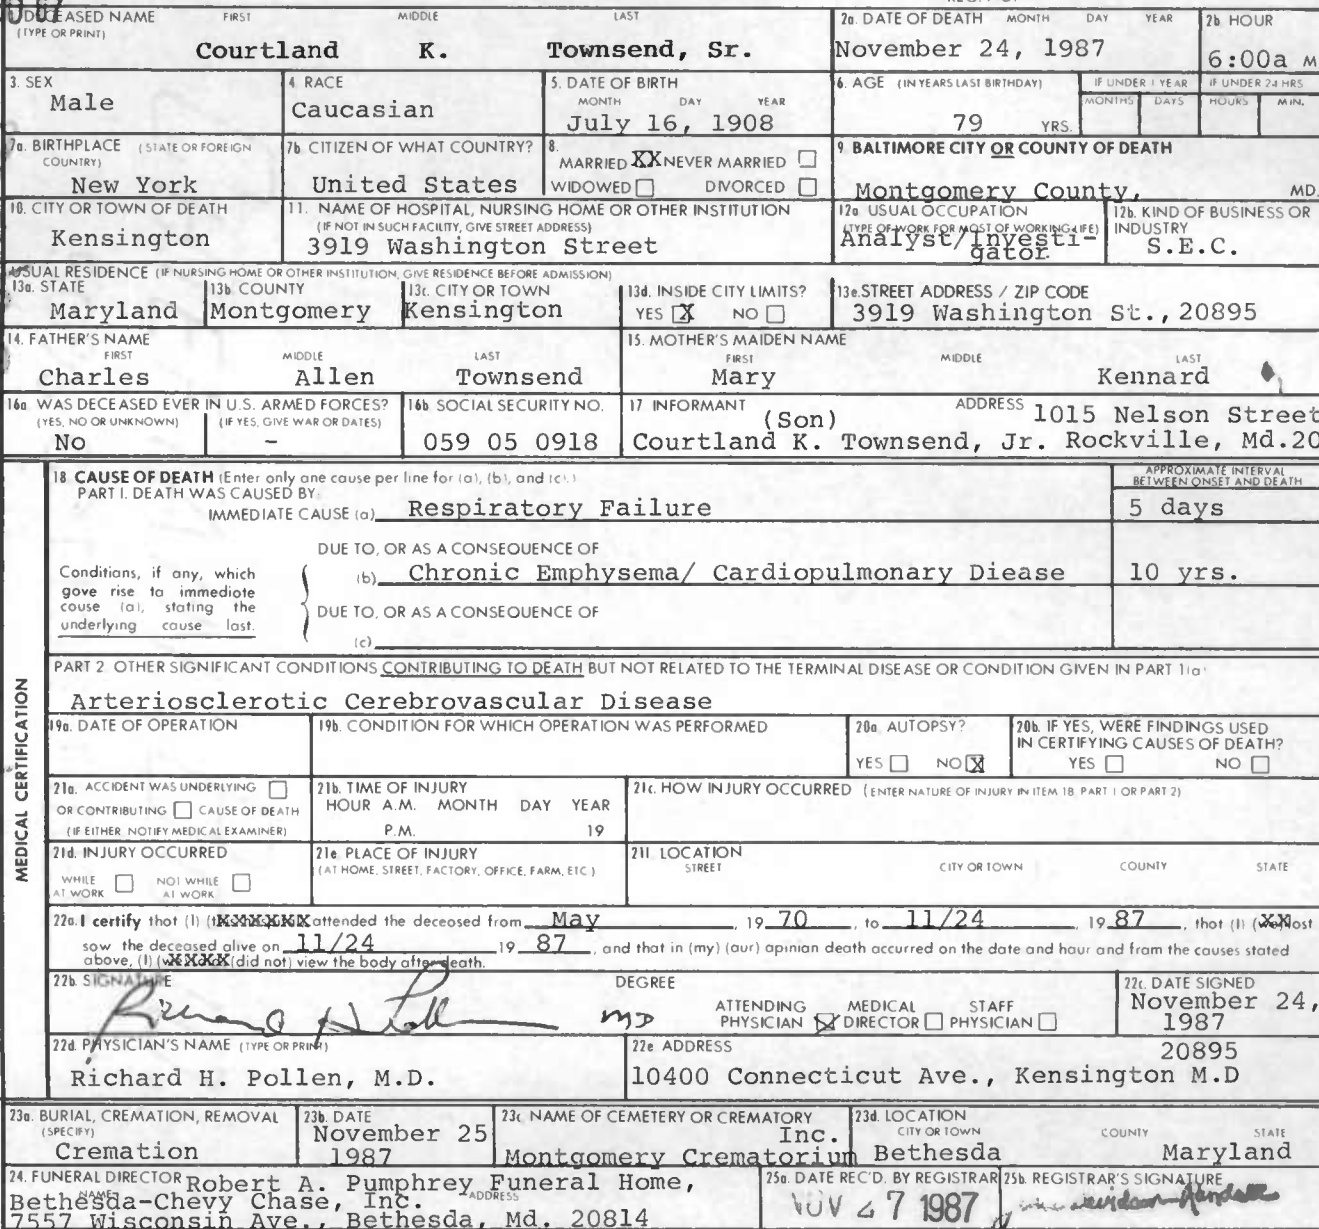 DECEASED NAME FIRST MIDDLE LAST
(TYPE OR PRINT)
Courtland K. Townsend, Sr.
2a. DATE OF DEATH MONTH DAY YEAR
November 24, 1987
2b HOUR
6:00a M
3. SEX
Male
4 RACE
Caucasian
5. DATE OF BIRTH
MONTH DAY YEAR
July 16, 1908
6. AGE (IN YEARS LAST BIRTHDAY)
79 YRS.
IF UNDER 1 YEAR
MONTHS DAYS
IF UNDER 24 HRS
HOURS MIN.
7a. BIRTHPLACE (STATE OR FOREIGN
COUNTRY)
New York
7b CITIZEN OF WHAT COUNTRY?
United States
8.
MARRIED XX NEVER MARRIED
WIDOWED DIVORCED
9 BALTIMORE CITY OR COUNTY OF DEATH
Montgomery County, MD.
10. CITY OR TOWN OF DEATH
Kensington
11. NAME OF HOSPITAL, NURSING HOME OR OTHER INSTITUTION
(IF NOT IN SUCH FACILITY, GIVE STREET ADDRESS)
3919 Washington Street
12a USUAL OCCUPATION
(TYPE OF WORK FOR MOST OF WORKING LIFE)
Analyst/Investi-
gator
12b. KIND OF BUSINESS OR
INDUSTRY
S.E.C.
USUAL RESIDENCE (IF NURSING HOME OR OTHER INSTITUTION, GIVE RESIDENCE BEFORE ADMISSION)
13a. STATE
Maryland
13b. COUNTY
Montgomery
13c. CITY OR TOWN
Kensington
13d. INSIDE CITY LIMITS?
YES X NO
13e. STREET ADDRESS / ZIP CODE
3919 Washington St., 20895
14. FATHER'S NAME
FIRST MIDDLE LAST
Charles Allen Townsend
15. MOTHER'S MAIDEN NAME
FIRST MIDDLE LAST
Mary Kennard
16a WAS DECEASED EVER IN U.S. ARMED FORCES?
(YES, NO OR UNKNOWN) (IF YES, GIVE WAR OR DATES)
No -
16b SOCIAL SECURITY NO.
059 05 0918
17 INFORMANT ADDRESS 1015 Nelson Street
(Son)
Courtland K. Townsend, Jr. Rockville, Md.20
MEDICAL CERTIFICATION
18 CAUSE OF DEATH (Enter only one cause per line for (a), (b), and (c).)
PART I. DEATH WAS CAUSED BY:
APPROXIMATE INTERVAL
BETWEEN ONSET AND DEATH
IMMEDIATE CAUSE (a) Respiratory Failure 5 days
DUE TO, OR AS A CONSEQUENCE OF
(b) Chronic Emphysema/ Cardiopulmonary Diease 10 yrs.
Conditions, if any, which
gove rise to immediote
couse (a), stating the
underlying cause last.
DUE TO, OR AS A CONSEQUENCE OF
(c)
PART 2 OTHER SIGNIFICANT CONDITIONS CONTRIBUTING TO DEATH BUT NOT RELATED TO THE TERMINAL DISEASE OR CONDITION GIVEN IN PART 1(a)
Arteriosclerotic Cerebrovascular Disease
19a. DATE OF OPERATION
19b. CONDITION FOR WHICH OPERATION WAS PERFORMED
20a AUTOPSY?
YES NO X
20b. IF YES, WERE FINDINGS USED
IN CERTIFYING CAUSES OF DEATH?
YES NO
21a. ACCIDENT WAS UNDERLYING
OR CONTRIBUTING CAUSE OF DEATH
(IF EITHER NOTIFY MEDICAL EXAMINER)
21b. TIME OF INJURY
HOUR A.M. MONTH DAY YEAR
P.M. 19
21c. HOW INJURY OCCURRED (ENTER NATURE OF INJURY IN ITEM 18 PART I OR PART 2)
21d. INJURY OCCURRED
WHILE AT WORK NOT WHILE AT WORK
21e PLACE OF INJURY
(AT HOME, STREET, FACTORY, OFFICE, FARM, ETC)
21f. LOCATION
STREET CITY OR TOWN COUNTY STATE
22a. I certify that (I) (XXXXXX attended the deceased from May 19 70, to 11/24 19 87, that (I) (XX last
sow the deceased alive on 11/24 19 87, and that in (my) (aur) apinian death accurred on the date and haur and fram the causes stated
above, (I) (XXXX (did not) view the body after death.
22b. SIGNATURE DEGREE
MD
ATTENDING PHYSICIAN X MEDICAL DIRECTOR STAFF PHYSICIAN
22c. DATE SIGNED
November 24,
1987
22d. PHYSICIAN'S NAME (TYPE OR PRINT)
Richard H. Pollen, M.D.
22e ADDRESS
20895
10400 Connecticut Ave., Kensington M.D
23a. BURIAL, CREMATION, REMOVAL
(SPECIFY)
Cremation
23b. DATE
November 25
1987
23c NAME OF CEMETERY OR CREMATORY
Inc.
Montgomery Crematorium
23d. LOCATION
CITY OR TOWN COUNTY STATE
Bethesda Maryland
24. FUNERAL DIRECTOR Robert A. Pumphrey Funeral Home,
NAME ADDRESS
Bethesda-Chevy Chase, Inc.
7557 Wisconsin Ave., Bethesda, Md. 20814
25a. DATE REC'D. BY REGISTRAR
NOV 27 1987
25b. REGISTRAR'S SIGNATURE